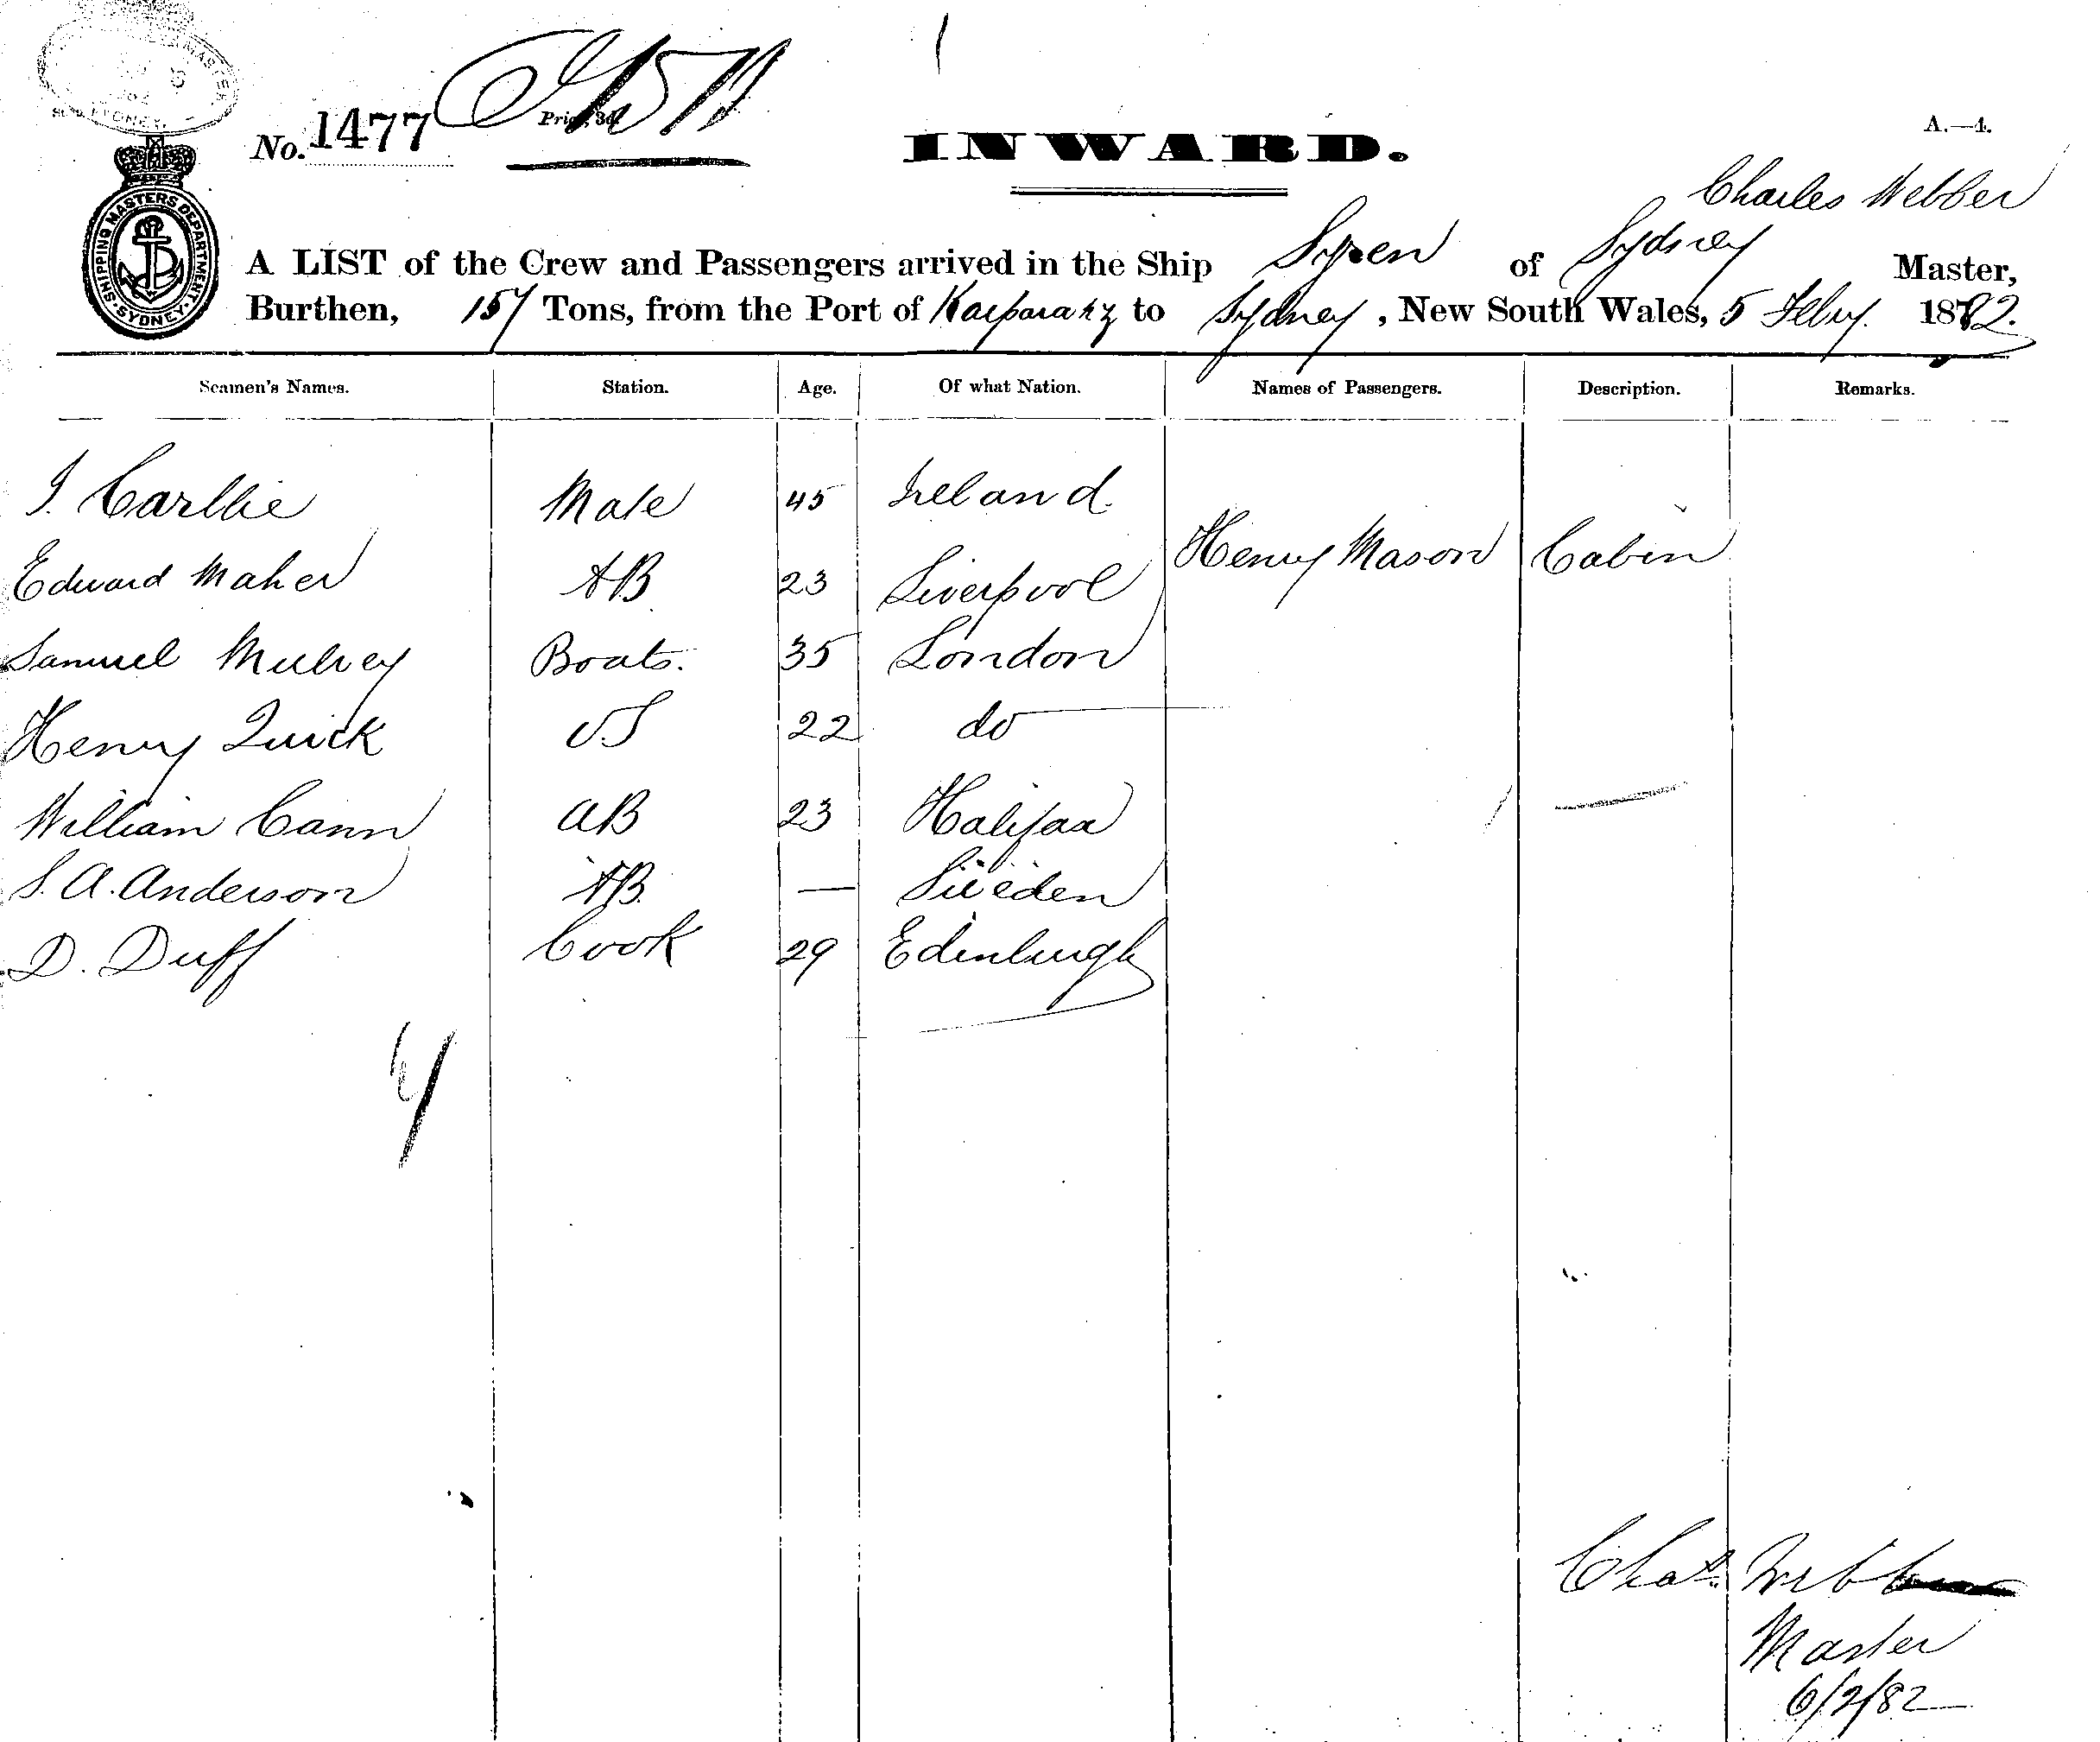 No. 1477
Price, 3d.
INWARD.
A.—4.
SHIPPING MASTERS DEPARTMENT SYDNEY
Charles Webber
A LIST of the Crew and Passengers arrived in the Ship Syren of Sydney Master,
Burthen, 157 Tons, from the Port of to Sydney, New South Wales, 5 Feby. 1882.
Seamen's Names. Station. Age. Of what Nation. Names of Passengers. Description. Remarks.
Mate 45 Ireland.
Henry Mason Cabin
Edward Maher AB 23 Liverpool
Samuel Mulvey Boats. 35 London
Henry Quick OS 22 do
William Cann AB 23 Halifax
S. A. Anderson AB. — Sweden
D. Duff Cook 29 Edinburgh
7
Chas. Webber
Master
6/2/82